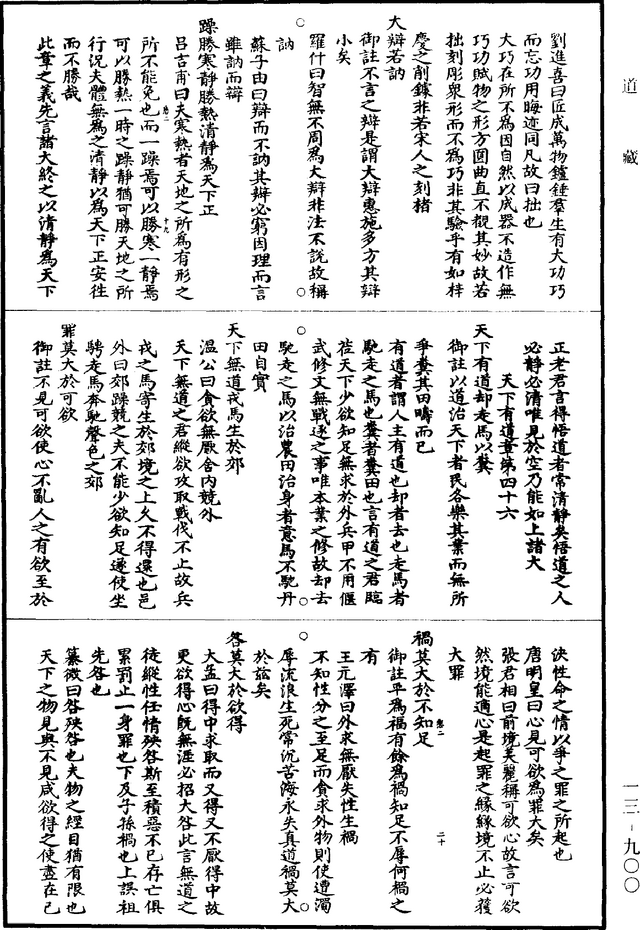 道藏
劉進喜曰匠成萬物鑪錘羣生有大功巧
而忘功用晦迹同凡故曰拙也
大巧在所不為因自然以成器不造作無
巧功賦物之形方圓曲直不覩其妙故若
拙刻彫衆形而不為巧非其驗乎有如梓
慶之削鐻非若宋人之刻楮
大辯若訥
御註不言之辯是謂大辯惠施多方其辯
小矣
羅什曰智無不周為大辯非法不說故稱
訥
蘇子由曰辯而不訥其辯必窮因理而言
雖訥而辯
躁勝寒靜勝熱清靜為天下正
呂吉甫曰夫寒熱者天地之所為有形之
所不能免也而一躁焉可以勝寒一靜焉
可以勝熱一時之躁靜猶可勝天地之所
行況夫體無為之清靜以為天下正安往
而不勝哉
此章之義先言諸大終之以清靜為天下
正老君言得悟道者常清靜矣悟道之人
必靜必清唯見於空乃能如上諸大
天下有道章第四十六
天下有道却走馬以糞
御註以道治天下者民各樂其業而無所
爭糞其田疇而已
有道者謂人主有道也却者去也走馬者
馳走之馬也糞者糞田也言有道之君臨
莅天下少欲知足無求於外兵甲不用偃
武修文無戰逐之事唯本業之修故却去
馳走之馬以治農田治身者意馬不馳丹
田自實
天下無道戎馬生於郊
溫公曰貪欲無厭舍內競外
天下無道之君縱欲攻取戰伐不止故兵
戎之馬寄生於郊境之上久不得還也邑
外曰郊躁競之夫不能少欲知足遂使坐
騁走馬奔馳聲色之郊
罪莫大於可欲
御註不見可欲使心不亂人之有欲至於
決性命之情以爭之罪之所起也
唐明皇曰心見可欲為罪大矣
張君相曰前境美麗稱可欲心故言可欲
然境能適心是起罪之緣緣境不止必獲
大罪
禍莫大於不知足
御註平為福有餘為禍知足不辱何禍之
有
王元澤曰外求無厭失性生禍
不知性分之至足而貪求外物則使遭濁
辱流浪生死常沉苦海永失真道禍莫大
於兹矣
咎莫大於欲得
大孟曰得中求取而又得又不厭得中故
更欲得心旣無涯必招大咎此言無道之
徒縱性任情殃咎斯至積惡不已存亡俱
累罰止一身罪也下及子孫禍也上誤祖
先咎也
纂微曰咎殃咎也夫物之經目猶有限也
天下之物見與不見咸欲得之使盡在已
一三-九〇〇